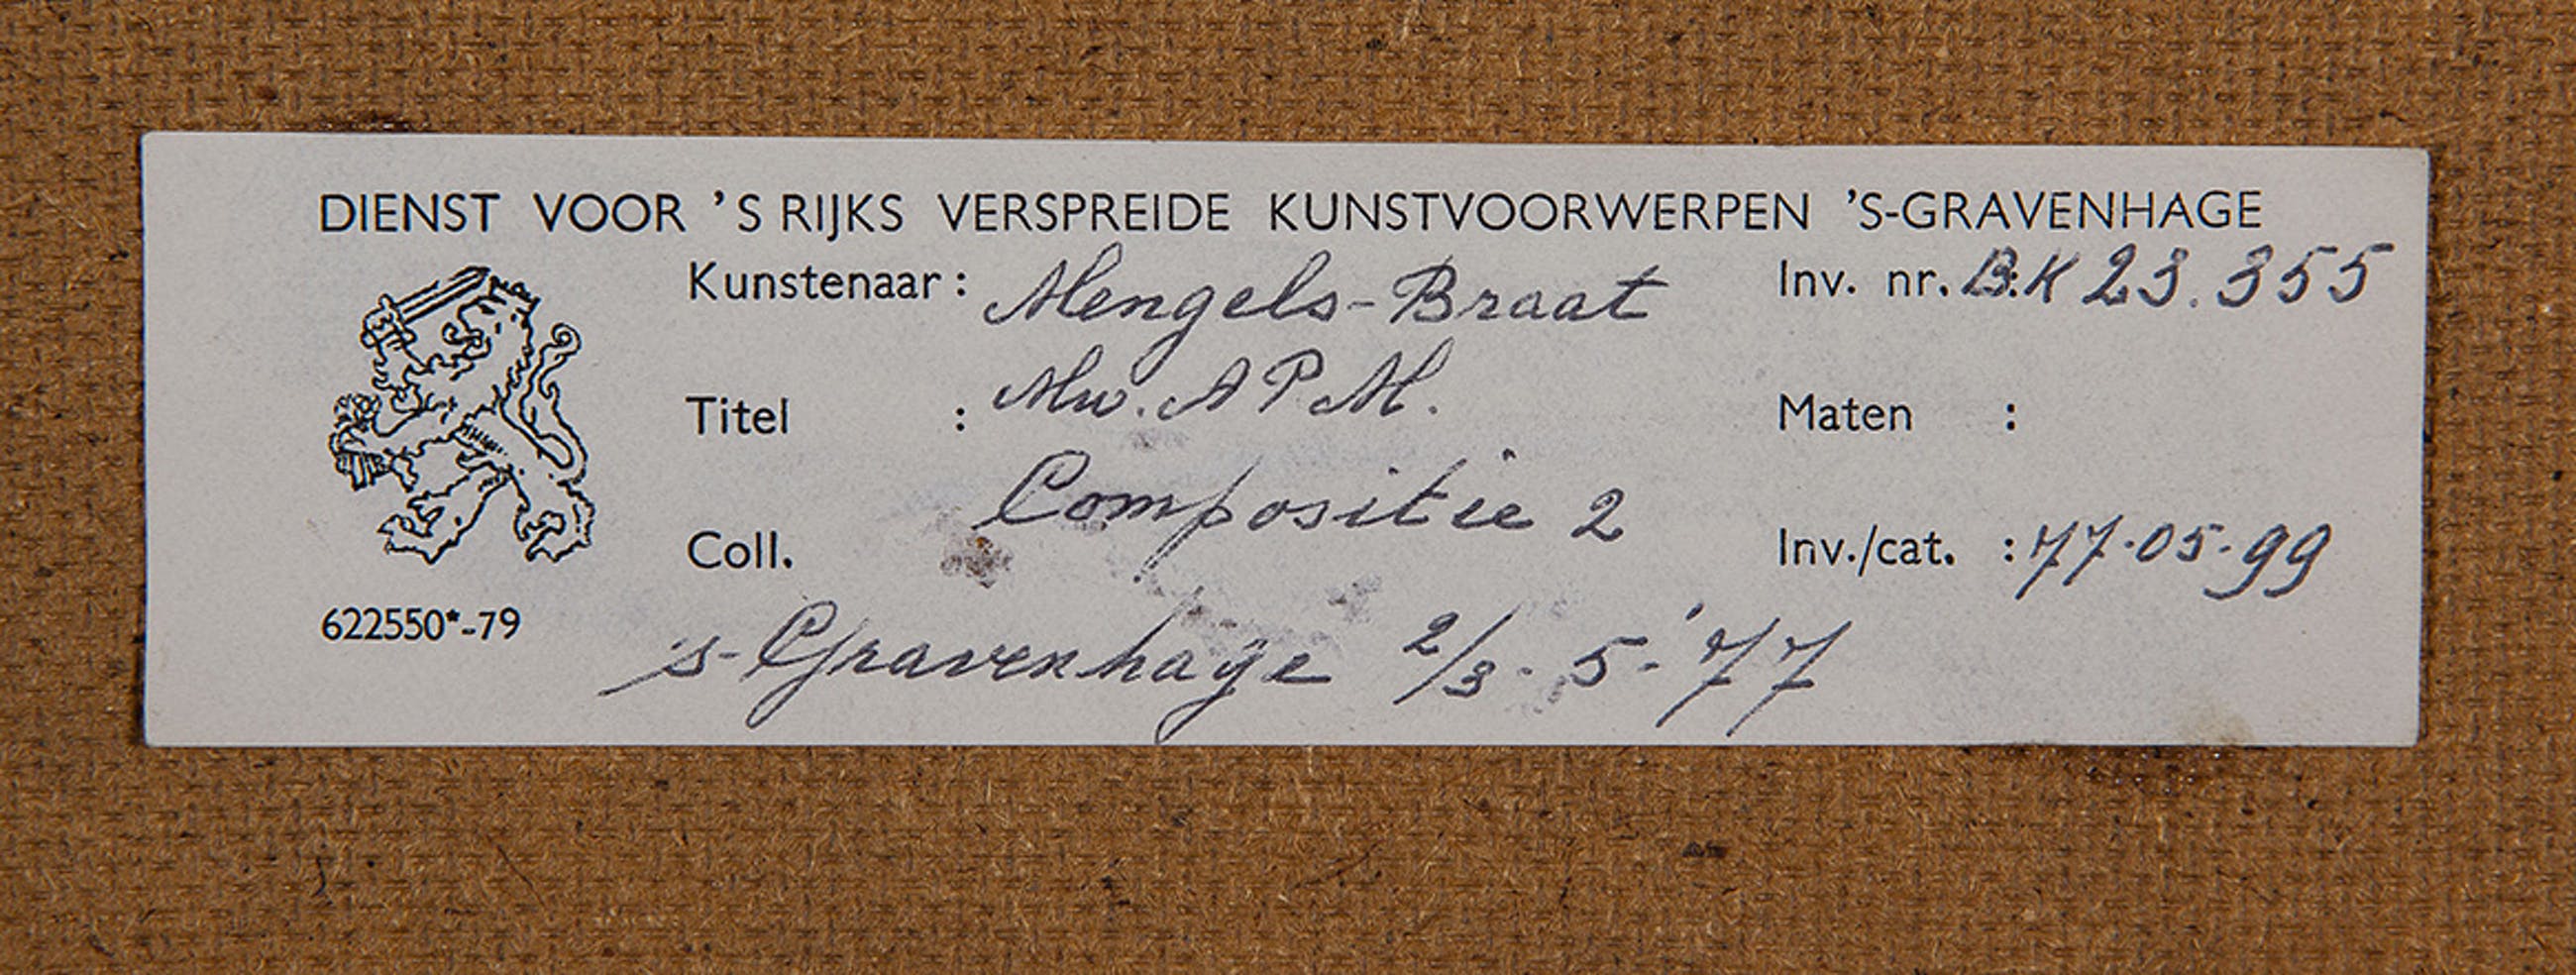 DIENST VOOR 'S RIJKS VERSPREIDE KUNSTVOORWERPEN 'S-GRAVENHAGE
Kunstenaar: Mengels-Braat Inv. nr. B.K 23.355
Mw. A P M.
Titel : Maten :
Compositie 2
Coll. Inv./cat. : 77-05-99
622550*-79
's-Gravenhage 2/3-5-'77